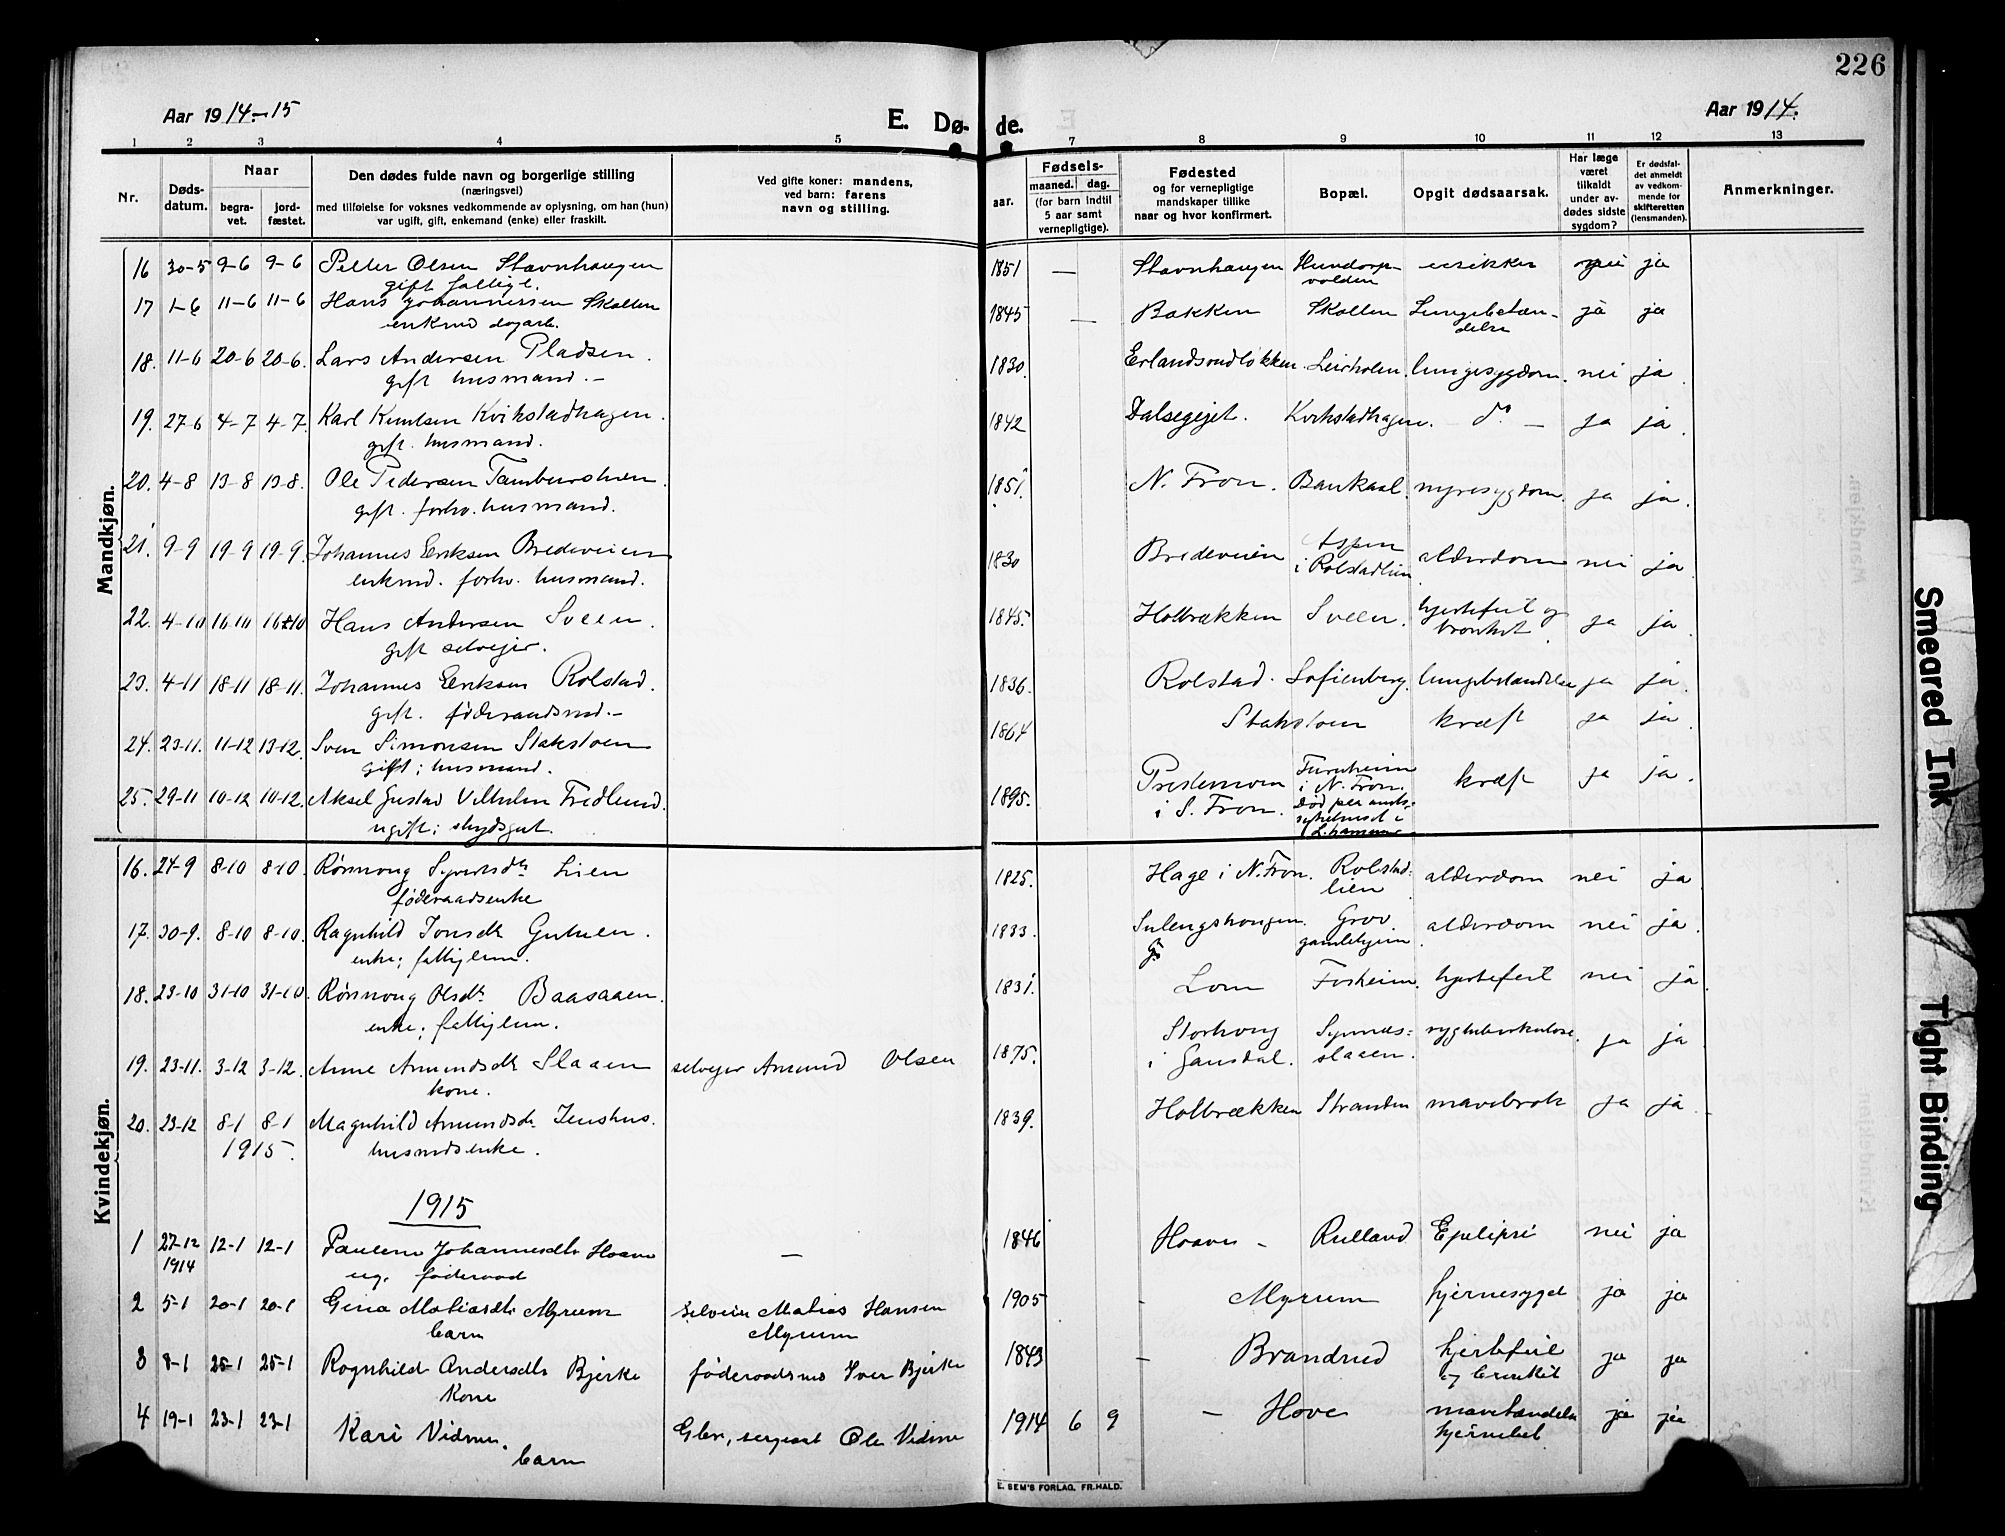 226
Aar 1914.-15
E. Dø- de.
Aar 1914.
1 2 3 4 5 7 8 9 10 11 12 13
Nr.
Døds-
datum.
Naar
begra-
vet.
jord-
fæstet.
Den dødes fulde navn og borgerlige stilling
(næringsvei)
med tilføielse for voksnes vedkommende av oplysning, om han (hun)
var ugift, gift, enkemand (enke) eller fraskilt.
Ved gifte koner: mandens,
ved barn: farens
navn og stilling.
aar.
Fødsels-
maaned. dag.
(for barn indtil
5 aar samt
vernepligtige).
Fødested
og for vernepligtige
mandskaper tillike
naar og hvor konfirmert.
Bopæl.
Opgit dødsaarsak.
Har læge
været
tilkaldt
under av-
dødes sidste
sygdom?
Er dødsfal-
det anmeldt
av vedkom-
mende for
skifteretten
(lensmanden).
Anmerkninger.
Mandkjøn.
16 30-5 9-6 9-6 Petter Olsen Stavnhaugen 1851 — Stavnhaugen Hundorp- nei ja
gift fattigl. volden
17 1-6 11-6 11-6 Hans Johannessen Skollen 1845 — Bakken Skollen Lungebetæn- ja ja
enkmd dagarb. delse
18. 11-6 20-6 20-6. Lars Andersen Pladsen. 1830. Erlandsrudløkken. Leirholen. lungesygdom. nei ja.
gift husmand. -
19. 27-6 4-7 4-7. Karl Knutsen Kvikstadhagen. 1842 Kvikstadhagen. do - ja ja.
gift. husmand.
20. 4-8 13-8 13-8. Ole Pedersen Tamburstuen. 1851. N. Fron. Baukaal. nyresygdom. ja ja.
gift. forhv. husmand.
21. 9-9 19-9 19-9. Johannes Eriksen Bredeveien 1830 Bredeveien Aspen alderdom nei ja.
enkmd. forhv. husmand. i Rolstadlien
22. 4-10 16-10 16-10 Hans Andersen Sveen. 1845. Holbrækken Sveen. hjertefeil og ja ja.
gift selveier. bronkit.
23. 4-11 18-11 18-11. Johannes Eriksen Rolstad. 1836. Rolstad. Sofienberg. lungebetændelse ja ja.
gift. føderaadsmd. -
24. 23-11. 11-12 13-12. Sven Simonsen Stakstoen 1864 Stakstoen kræft ja ja.
gift; husmand.
25. 29-11 10-12 10-12. Aksel Gustad Vilhelm Fredlund. 1895. Prestemoen Furuheim kræft ja ja.
ugift; skydsgut. i S. Fron. i N. Fron.
død paa amts-
sykehuset i
L.hammer
Kvindekjøn.
16. 24-9 8-10 8-10. Rønnoug Syvertsdtr Lien 1825. Hage i N. Fron. Rolstad- alderdom nei ja
føderaadsenke lien
17. 30-9. 8-10 8-10. Ragnhild Jonsdtr Gutuen. 1833. Sulengshougen. Grov alderdom nei ja.
enke; fattiglem. gamlehjem.
18. 23-10 31-10 31-10 Rønnoug Olsdtr Baasaaen. 1831. Lom Fosheim. hjertefeil nei ja.
enke; fattiglem.
19. 23-11. 3-12 3-12. Anne Amundsdtr Slaaen selveier Amund Olsen 1875. Storhoug Synnes- rygtuberkulose. ja ja
kone. i Gausdal. slaaen.
20. 23-12 8-1 8-1 Magnhild Amundsdtr Jenshus. 1839. Holbrækken Stranden mavebrok ja ja.
1915. husmdsenke.
1915
1 27-12 12-1 12-1 Pauline Johannesdtr Hoave — 1846 Hoave - Rulland Epilipsi nei ja
1914 ug. føderaad
2 5-1 20-1 20-1 Gina Matiasdtr Myrum Selveier Matias Hansen 1905 - Myrum hjernesygd ja ja
barn Myrum
3 8-1 25-1 25-1 Rognhild Andersdtr Bjerke føderaadsmd Iver Bjerke 1843 - Brandrud hjertefeil ja ja
Kone og bronkit
4 19-1 23-1 23-1 Kari Vidme. Gbr, sergeant Ole Vidme 1914 6 9 - Hove mavebændelse ja ja
barn hjernebet
E. SEM'S FORLAG, FR.HALD.
Smeared Ink
Tight Binding